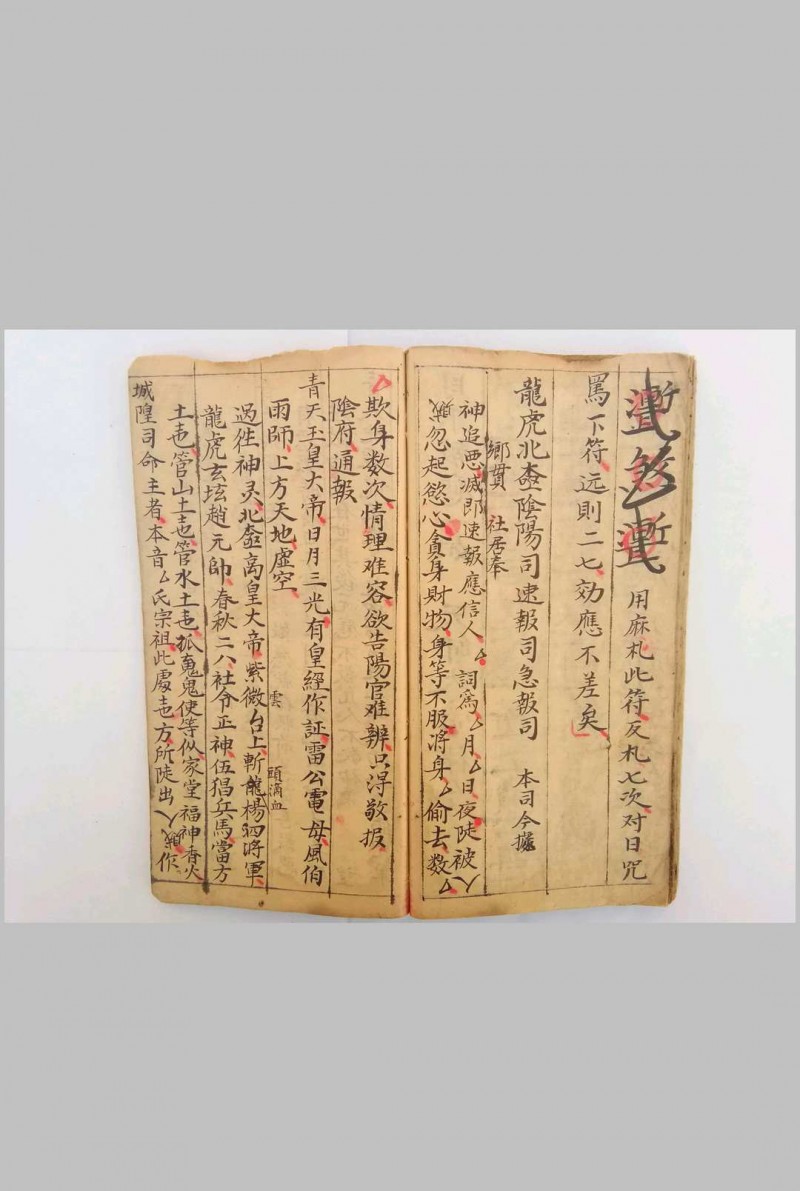 用麻札此符反札七次对日咒
罵下符远則二七効應不差矣
龍虎北壺陰陽司速報司急報司 本司今據
鄉貫 社居奉
神追悪滅即速報應信人厶 詞為厶月厶日夜陡被人
忽起慾心貪身財物身等不服將身厶偷去数
欺身数次情理难容欲告陽官难辨只淂敬报
陰府通報
青天玉皇大帝日月三光有皇經作証雷公電母風伯
雨師上方天地虚空 雲 頭滴血
過徃神灵北壺高皇大帝紫微台上斬龍楊泗將軍
龍虎玄坛趙元帥春秋二八社令正神伍猖兵馬當方
土地管山土地管水土地孤䰟鬼使等似家堂福神香火
城隍司命主者本音厶氏宗祖此處地方所陡出人作